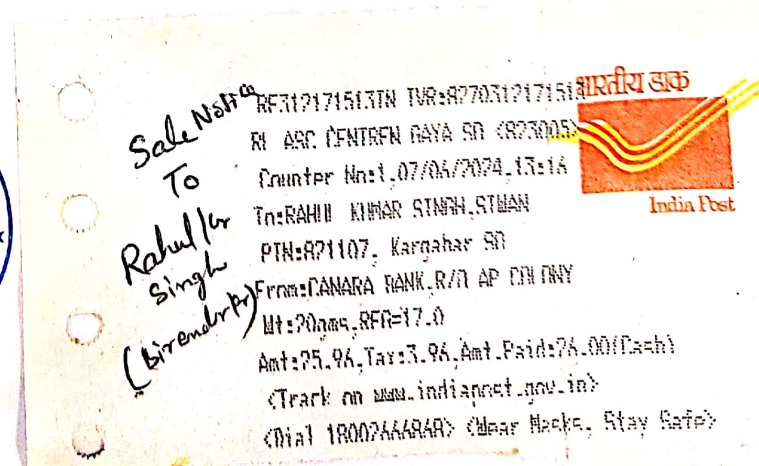 भारतीय डाक
India Post
Sale Notice
To
Rahul Kr
Singh
(Birendr Pr)
RF312171513IN IVR:8270312171513
RL ASC CENTREN GAYA SO <823005>
Counter No:1,07/06/2024,13:16
To:RAHUL KUMAR SINGH,SIWAN
PIN:821107, Kargahar SO
From:CANARA BANK,R/O AP COLONY
Wt:20gms,REG=17.0
Amt:25.96,Tax:3.96,Amt.Paid:26.00(Cash)
<Track on www.indiapost.gov.in>
<Dial 18002666868> <Wear Masks, Stay Safe>